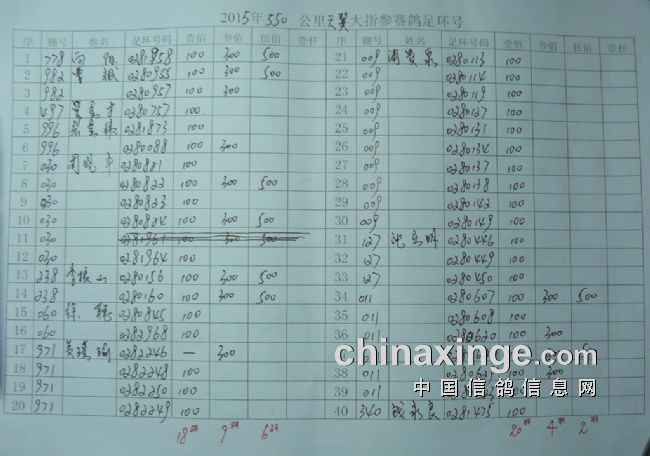 2015年 550 公里天翼大指参赛鸽足环号
序 棚号 姓名 足环号码 壹佰 叁佰 伍佰 壹仟 序 棚号 姓名 足环号码 壹佰 叁佰 伍佰 壹仟
1 778 0281958 100 300 500 21 009 0280113 100
2 982 曹 0280955 100 300 500 22 009 0280114 100
3 982 0280957 100 300 23 009 0280119 100
4 497 0280757 100 24 009 0280127 100
5 996 0281873 100 25 009 0280131 100
6 996 0280088 100 300 26 009 0280134 100
7 030 周 0280821 100 27 009 0280137 100
8 030 0280822 100 300 500 28 009 0280138 100
9 030 0280823 100 29 009 0280142 100
10 030 0280824 100 300 500 30 009 0280149 100
11 030 0281961 100 300 500 31 127 沈 0280446 100
12 030 0281964 100 32 127 0280449 100
13 238 李振山 0280156 100 300 500 33 127 0280450 100
14 238 0280160 100 300 500 34 011 0280607 100 300 500
15 060 徐 0280845 100 35 011 0280608 100
16 060 0282968 100 36 011 0280620 100 300
17 971 0282246 — 300 37
18 971 0282248 100 38 011 300
19 971 0282250 100 39 011
20 971 0282249 100 40 340 战永良 0281475 100
18 9 6 20 4 2
chinaxinge.com
中国信鸽信息网